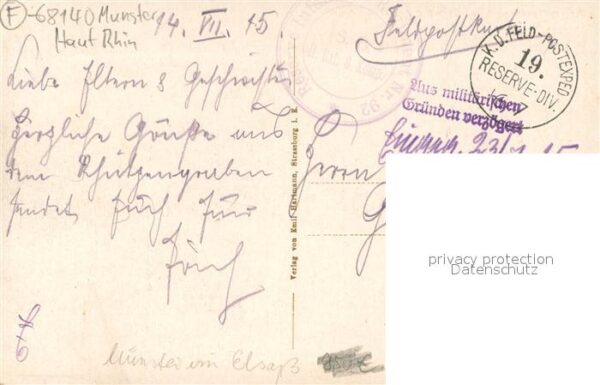 F-68140 Munster
Haut Rhin
14. VII. 15.
Feldpostkarte
Liebe Eltern & Geschwister
Herzliche Grüße aus
dem Schützengraben
sendet Euch Euer
Verlag von Emil Hartmann, Strassburg i. E.
Nr. 92
K.D. FELD-POSTEXPED
19.
RESERVE-DIV.
Aus militärischen
Gründen verzögert
Herrn
privacy protection
Datenschutz
Münster im Elsaß